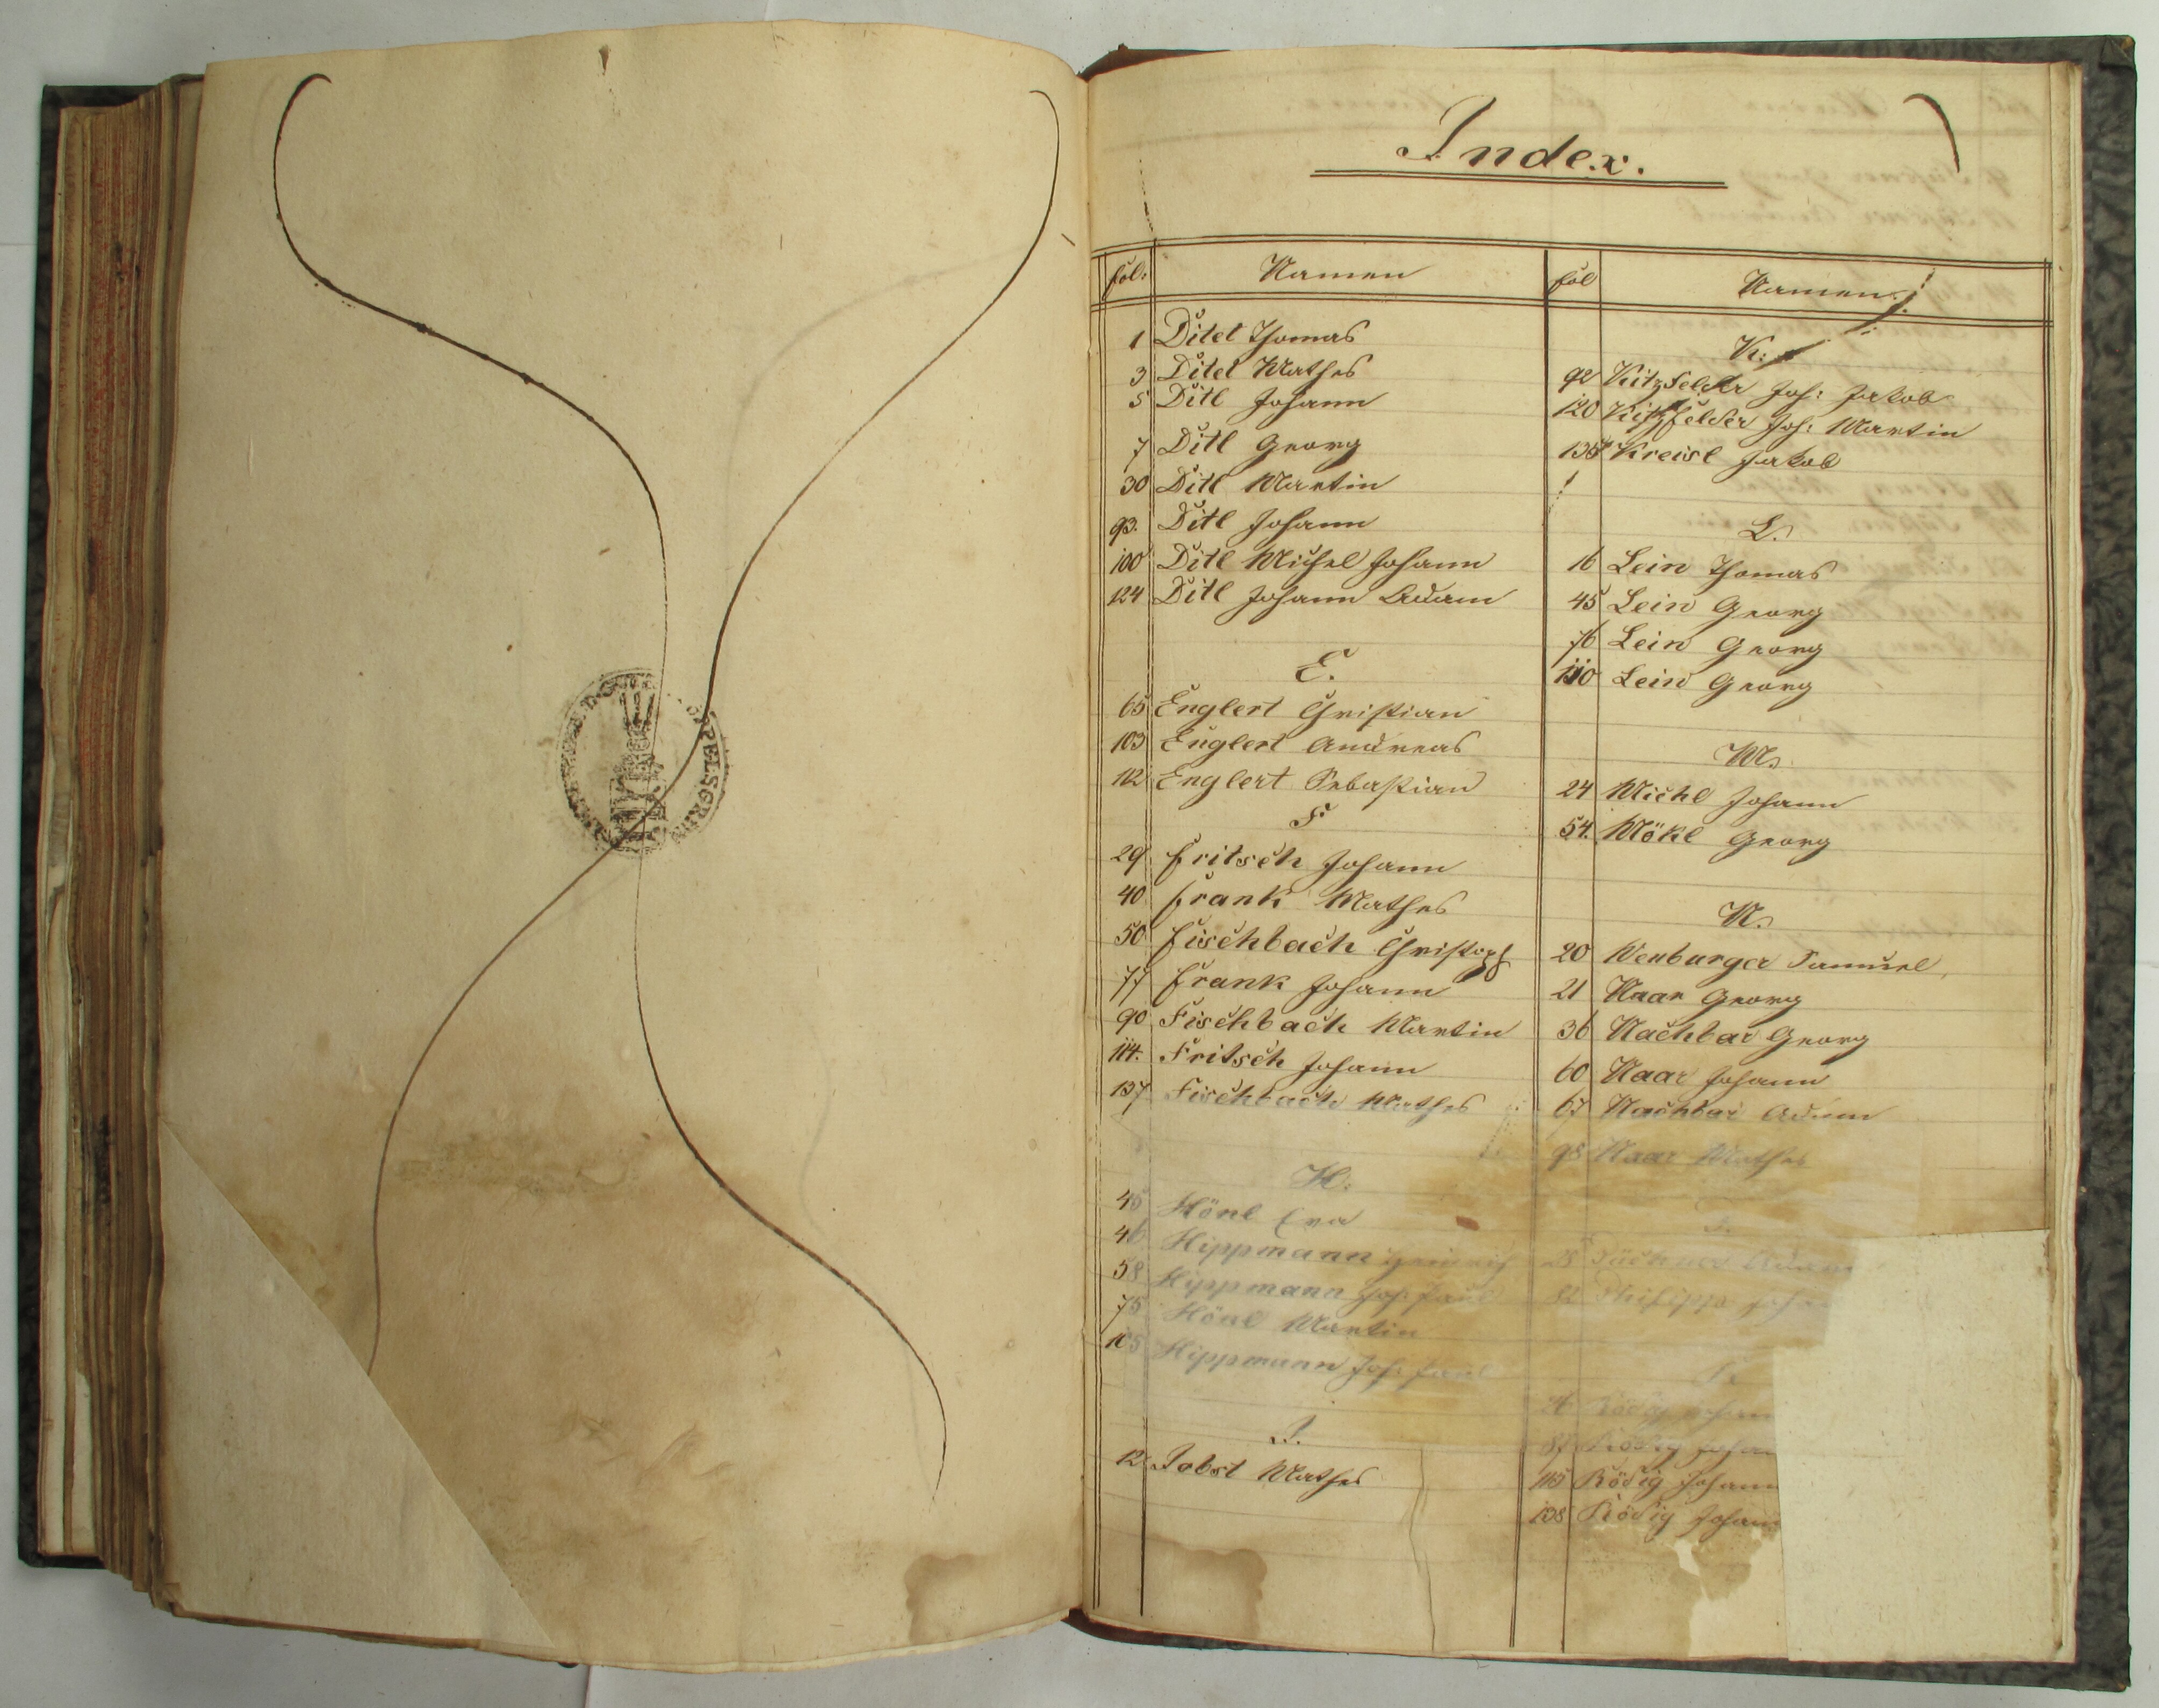 Index.
fol: Namen
1 Ditel Thomas
3 Ditel Mathes
5 Ditl Johann
7 Ditl Georg
30 Ditl Martin
93. Ditl Johann
100 Ditl Michel Johann
124 Ditl Johann Adam
E.
65 Englert Christian
103 Englert Andreas
112 Englert Sebastian
F
29 Fritsch Johann
40 Frank Mathes
50 Fischbach Christoph
77 Frank Johann
90 Fischbach Martin
114. Fritsch Johann
137 Fischbach Mathes
H.
45 Hönl Eva
46 Hippmann Heinrich
58 Hippmann Joh: Paul
75 Hönl Martin
105 Hippmann Joh: Paul
J.
12 Jobst Mathes
fol Namen.
K:
92 Kitzfelder Joh: Jakob
120 Kitzfelder Joh: Martin
138 Kreisl Jakob
L.
16 Lein Thomas
45 Lein Georg
76 Lein Georg
110 Lein Georg
M.
24 Michl Johann
54. Mökl Georg
N.
20 Neuburger Samuel
21 Naar Georg
36 Nachbar Georg
60 Naar Johann
67 Nachbar Adam
98 Naar Mathes
28 Adam
82 Philipp
26 Rödig Johann
87 Rödig Johan
115 Rödig Johann
138 Rödig Johann